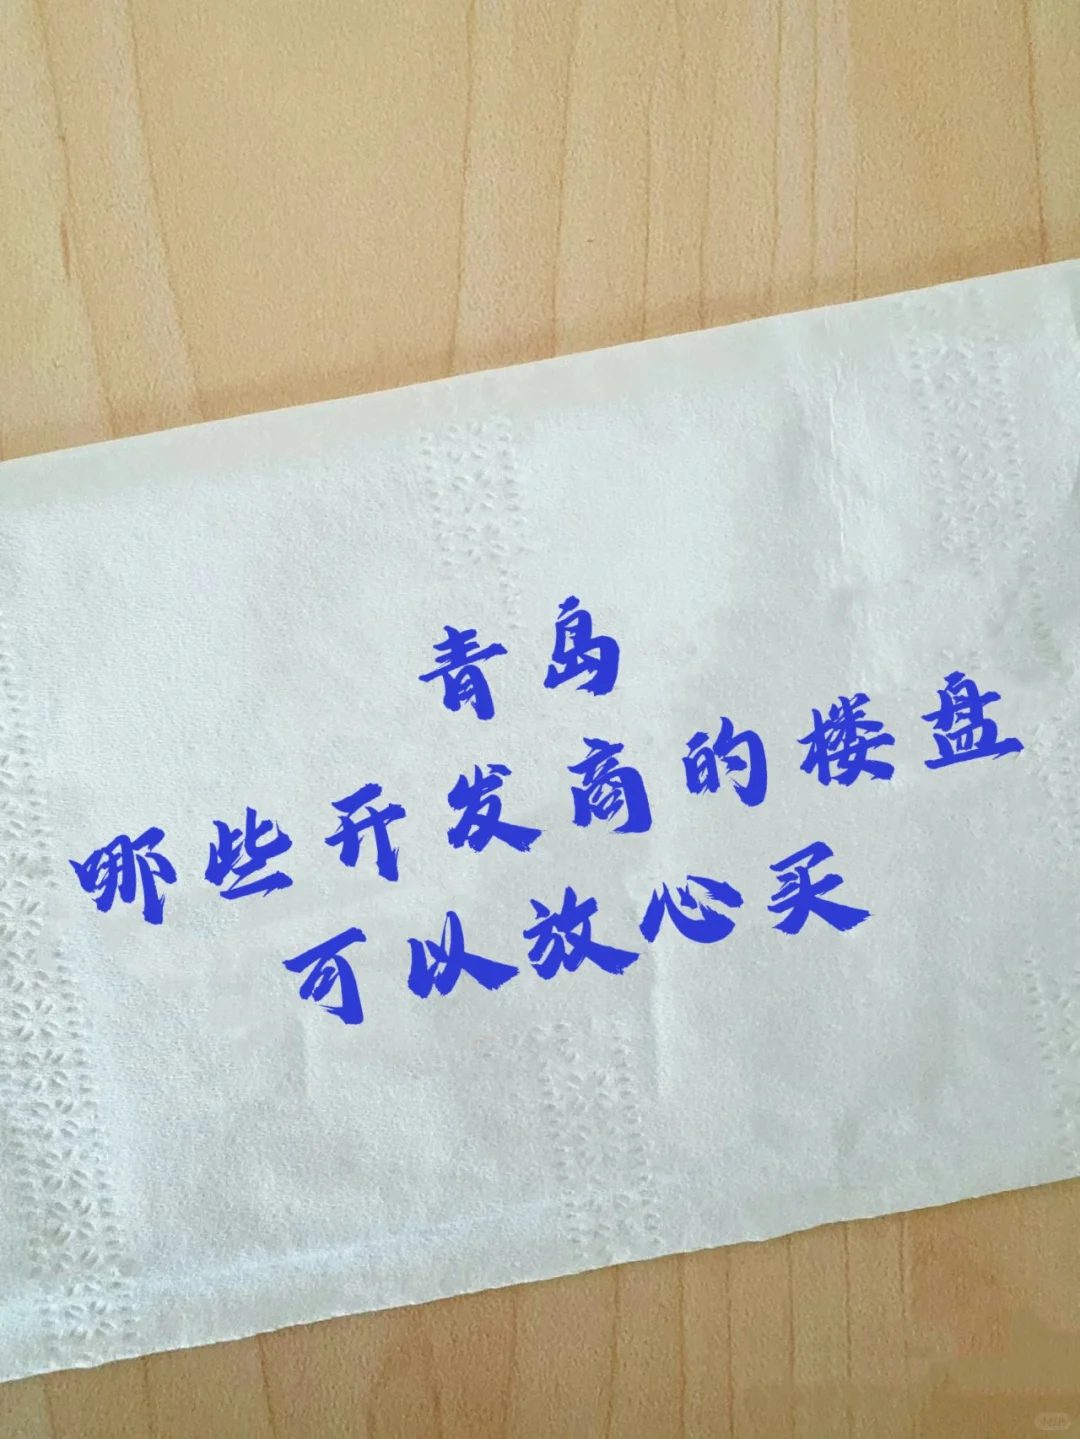 青岛
哪些开发商的楼盘
可以放心买